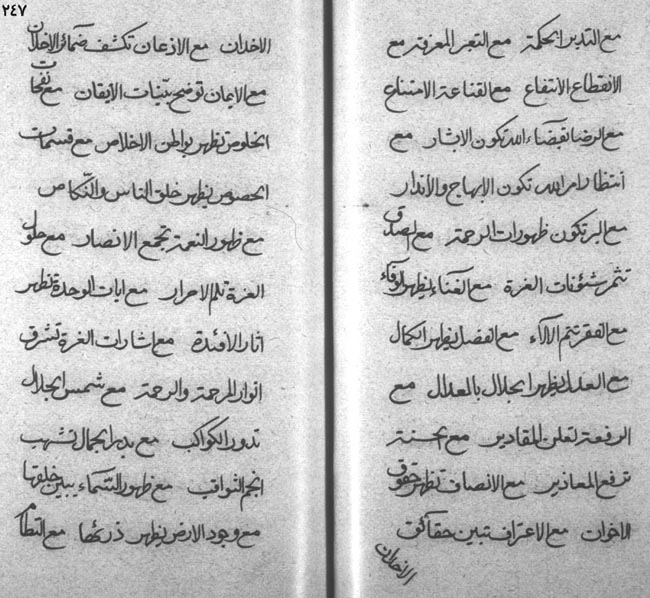 ٢٤٧
مع التدبر الحكمة مع التعبر المعرفة مع
الانقطاع الانتفاع مع القناعة الامتناع
مع الرضا بقضاء الله تكون الايثار مع
انتظار امر الله تكون الابهاج والانذار
مع البر تكون ظهورات الرحمة مع الصدق
تثمر شئونات العزة مع الفناء يظهر الوفاء
مع الفقر تتم الآلاء مع الفضل يظهر الكمال
مع العدل يظهر الجلال بالمعدال مع
الرفعة تعلن المقادير مع الحسنة
ترفع المعاذير مع الانصاف تظهر حقوق
الاخوان مع الاعتراف تبين حقائق
الاخدان
الاخدان مع الاذعان تكشف ضمائر الاخلان
مع الايمان توضح بينات الايقان مع نفحات
الخلوص تظهر بواطن الاخلاص مع قسمات
الخصوص يظهر خلق الناس والنكاص
مع ظهور النعمة تجمع الانصار مع حلول
العزة تلم الاحرار مع ايات الوحدة تظهر
اثار الأفئدة مع اشارات العزة تشرق
انوار المرحمة والرحمة مع شمس الجلال
تدور الكواكب مع بدر الجمال تشهب
انجم الثواقب مع ظهور السماء يبين خلقها
مع وجود الارض يظهر ذرئها مع النظام